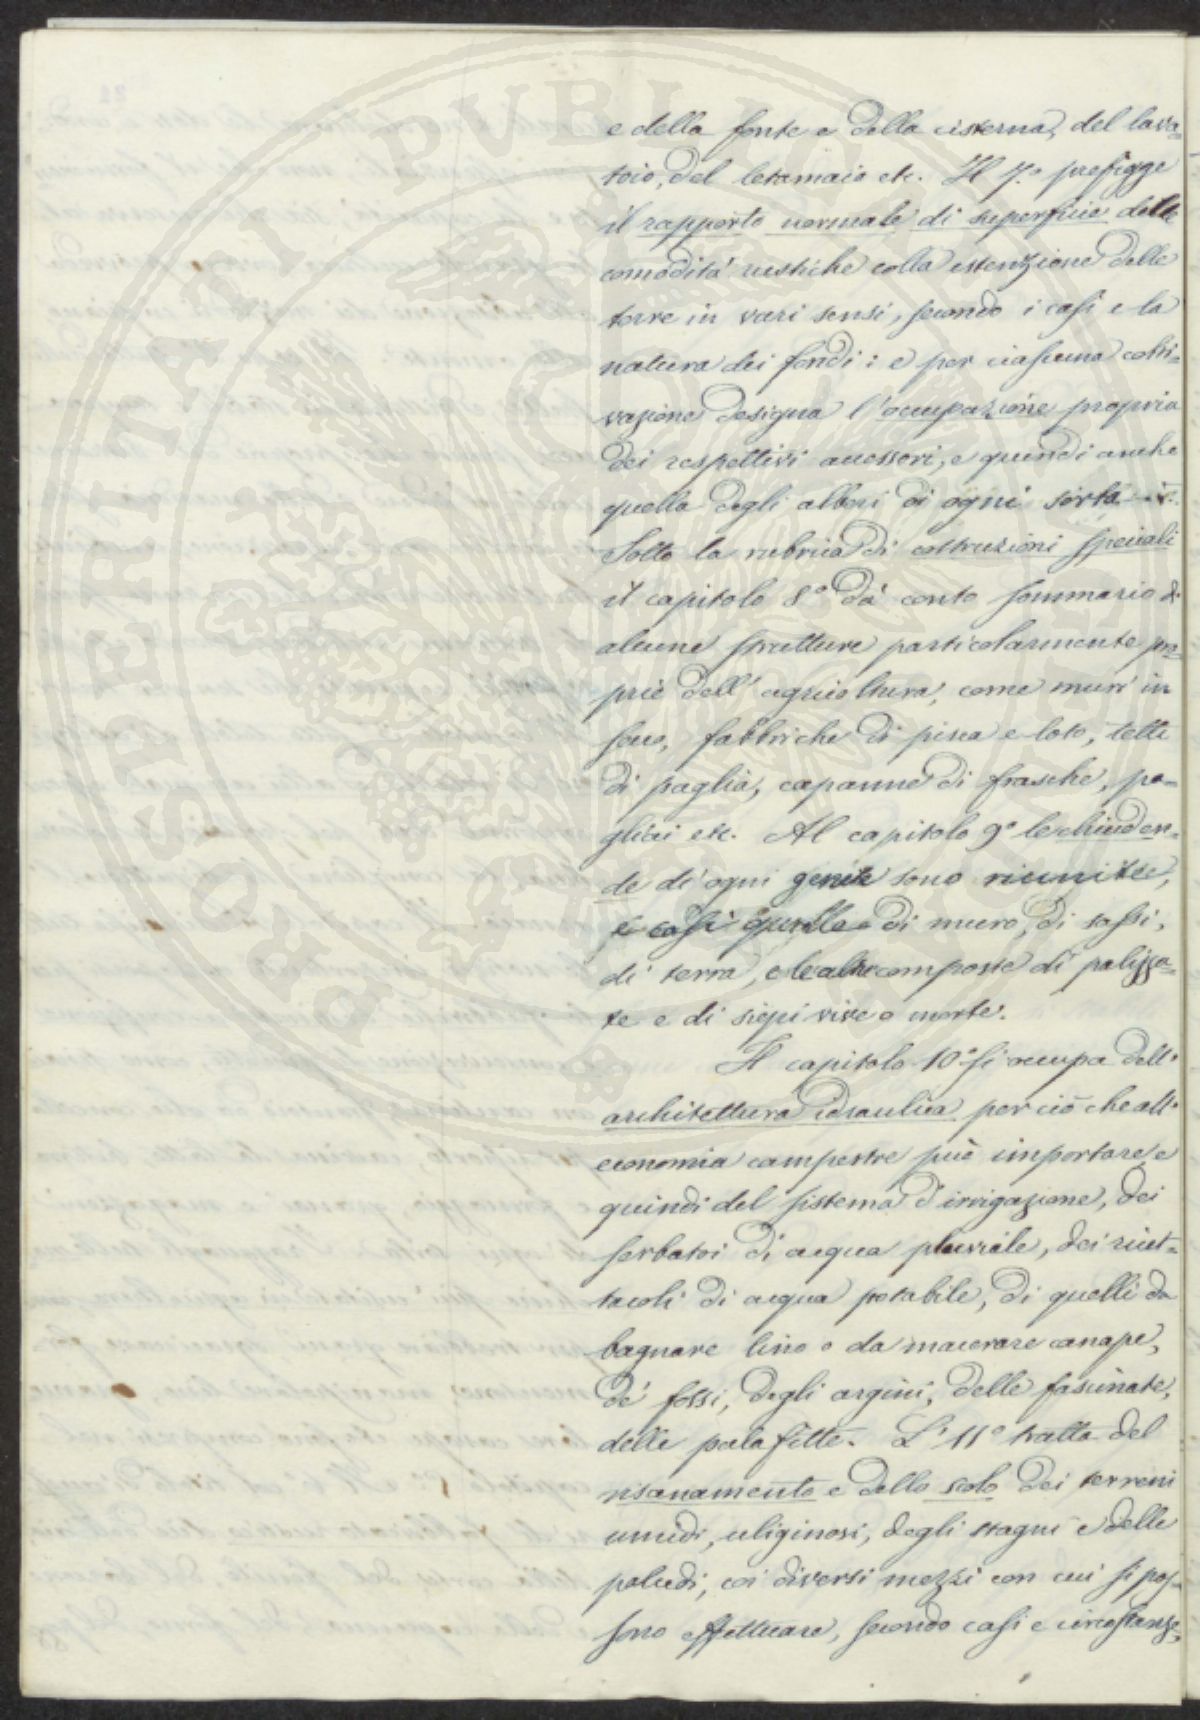 PROSPERITATI PVBLICAE
e della fonte e della cisterna, del lava=
toio, del letamaio etc. Il 7.º prefigge
il rapporto normale di superficie delle
comodità rustiche colla estenzione delle
terre in vari sensi, secondo i casi e la
natura dei fondi: e per ciascuna colti=
vazione designa l'occupazione propria
dei respettivi accessori, e quindi anche
quella degli alberi di ogni sorta
Sotto la rubrica di costruzioni speciali
il capitolo 8º dà conto sommario di
alcune strutture particolarmente pro=
prie dell'agricoltura, come muri in
secco, fabbriche di pisea e loto, tetti
di paglia, capanne di frasche, pa=
gliai etc. Al capitolo 9º le chiuden=
de di ogni genere sono riunite,
e così quelle di muro, di sassi,
di terra, e le altre composte di palizza=
te e di siepi vive o morte.
Il capitolo 10º si occupa dell'
architettura idraulica per ciò che all'
economia campestre può importare, e
quindi del sistema d'irrigazione, dei
serbatoi di acqua pluviale, dei ricet=
tacoli di acqua potabile, di quelli da
bagnare lino o da macerare canape,
de' fossi, degli argini, delle fascinate,
delle palafitte. L'11º tratta del
risanamento e dello scolo dei terreni
umidi, uliginosi, degli stagni e delle
paludi, coi diversi mezzi con cui si pos=
sono effettuare, secondo casi e circostanze,